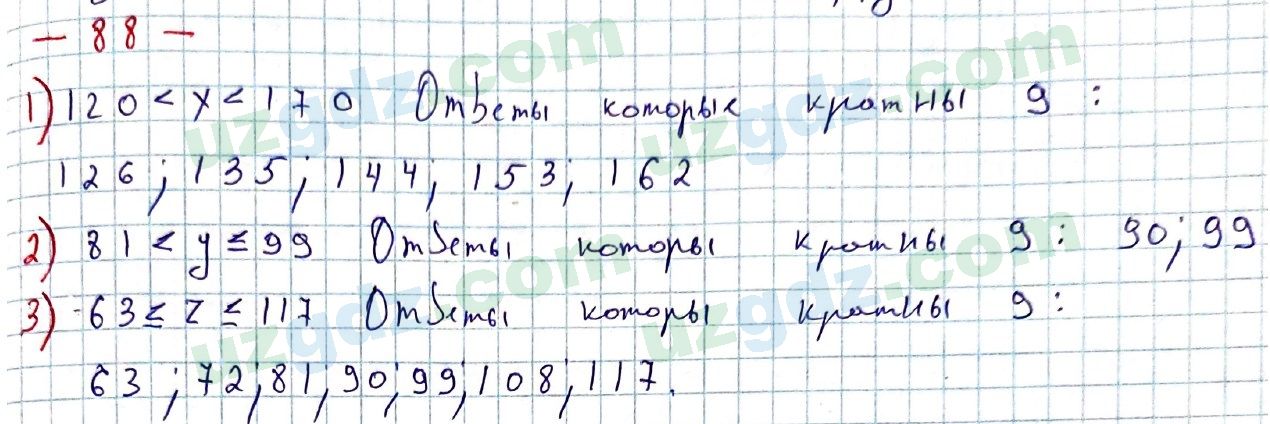 - 88 -
1) 120 < x < 170 Ответы которые кратны 9 :
126; 135; 144; 153; 162
2) 81 < y ≤ 99 Ответы которы кратны 9 : 90; 99
3) 63 ≤ z ≤ 117 Ответы которы кратны 9 :
63; 72; 81; 90; 99; 108; 117.
uzgdz.com
uzgdz.com
uzgdz.com
uzgdz.com